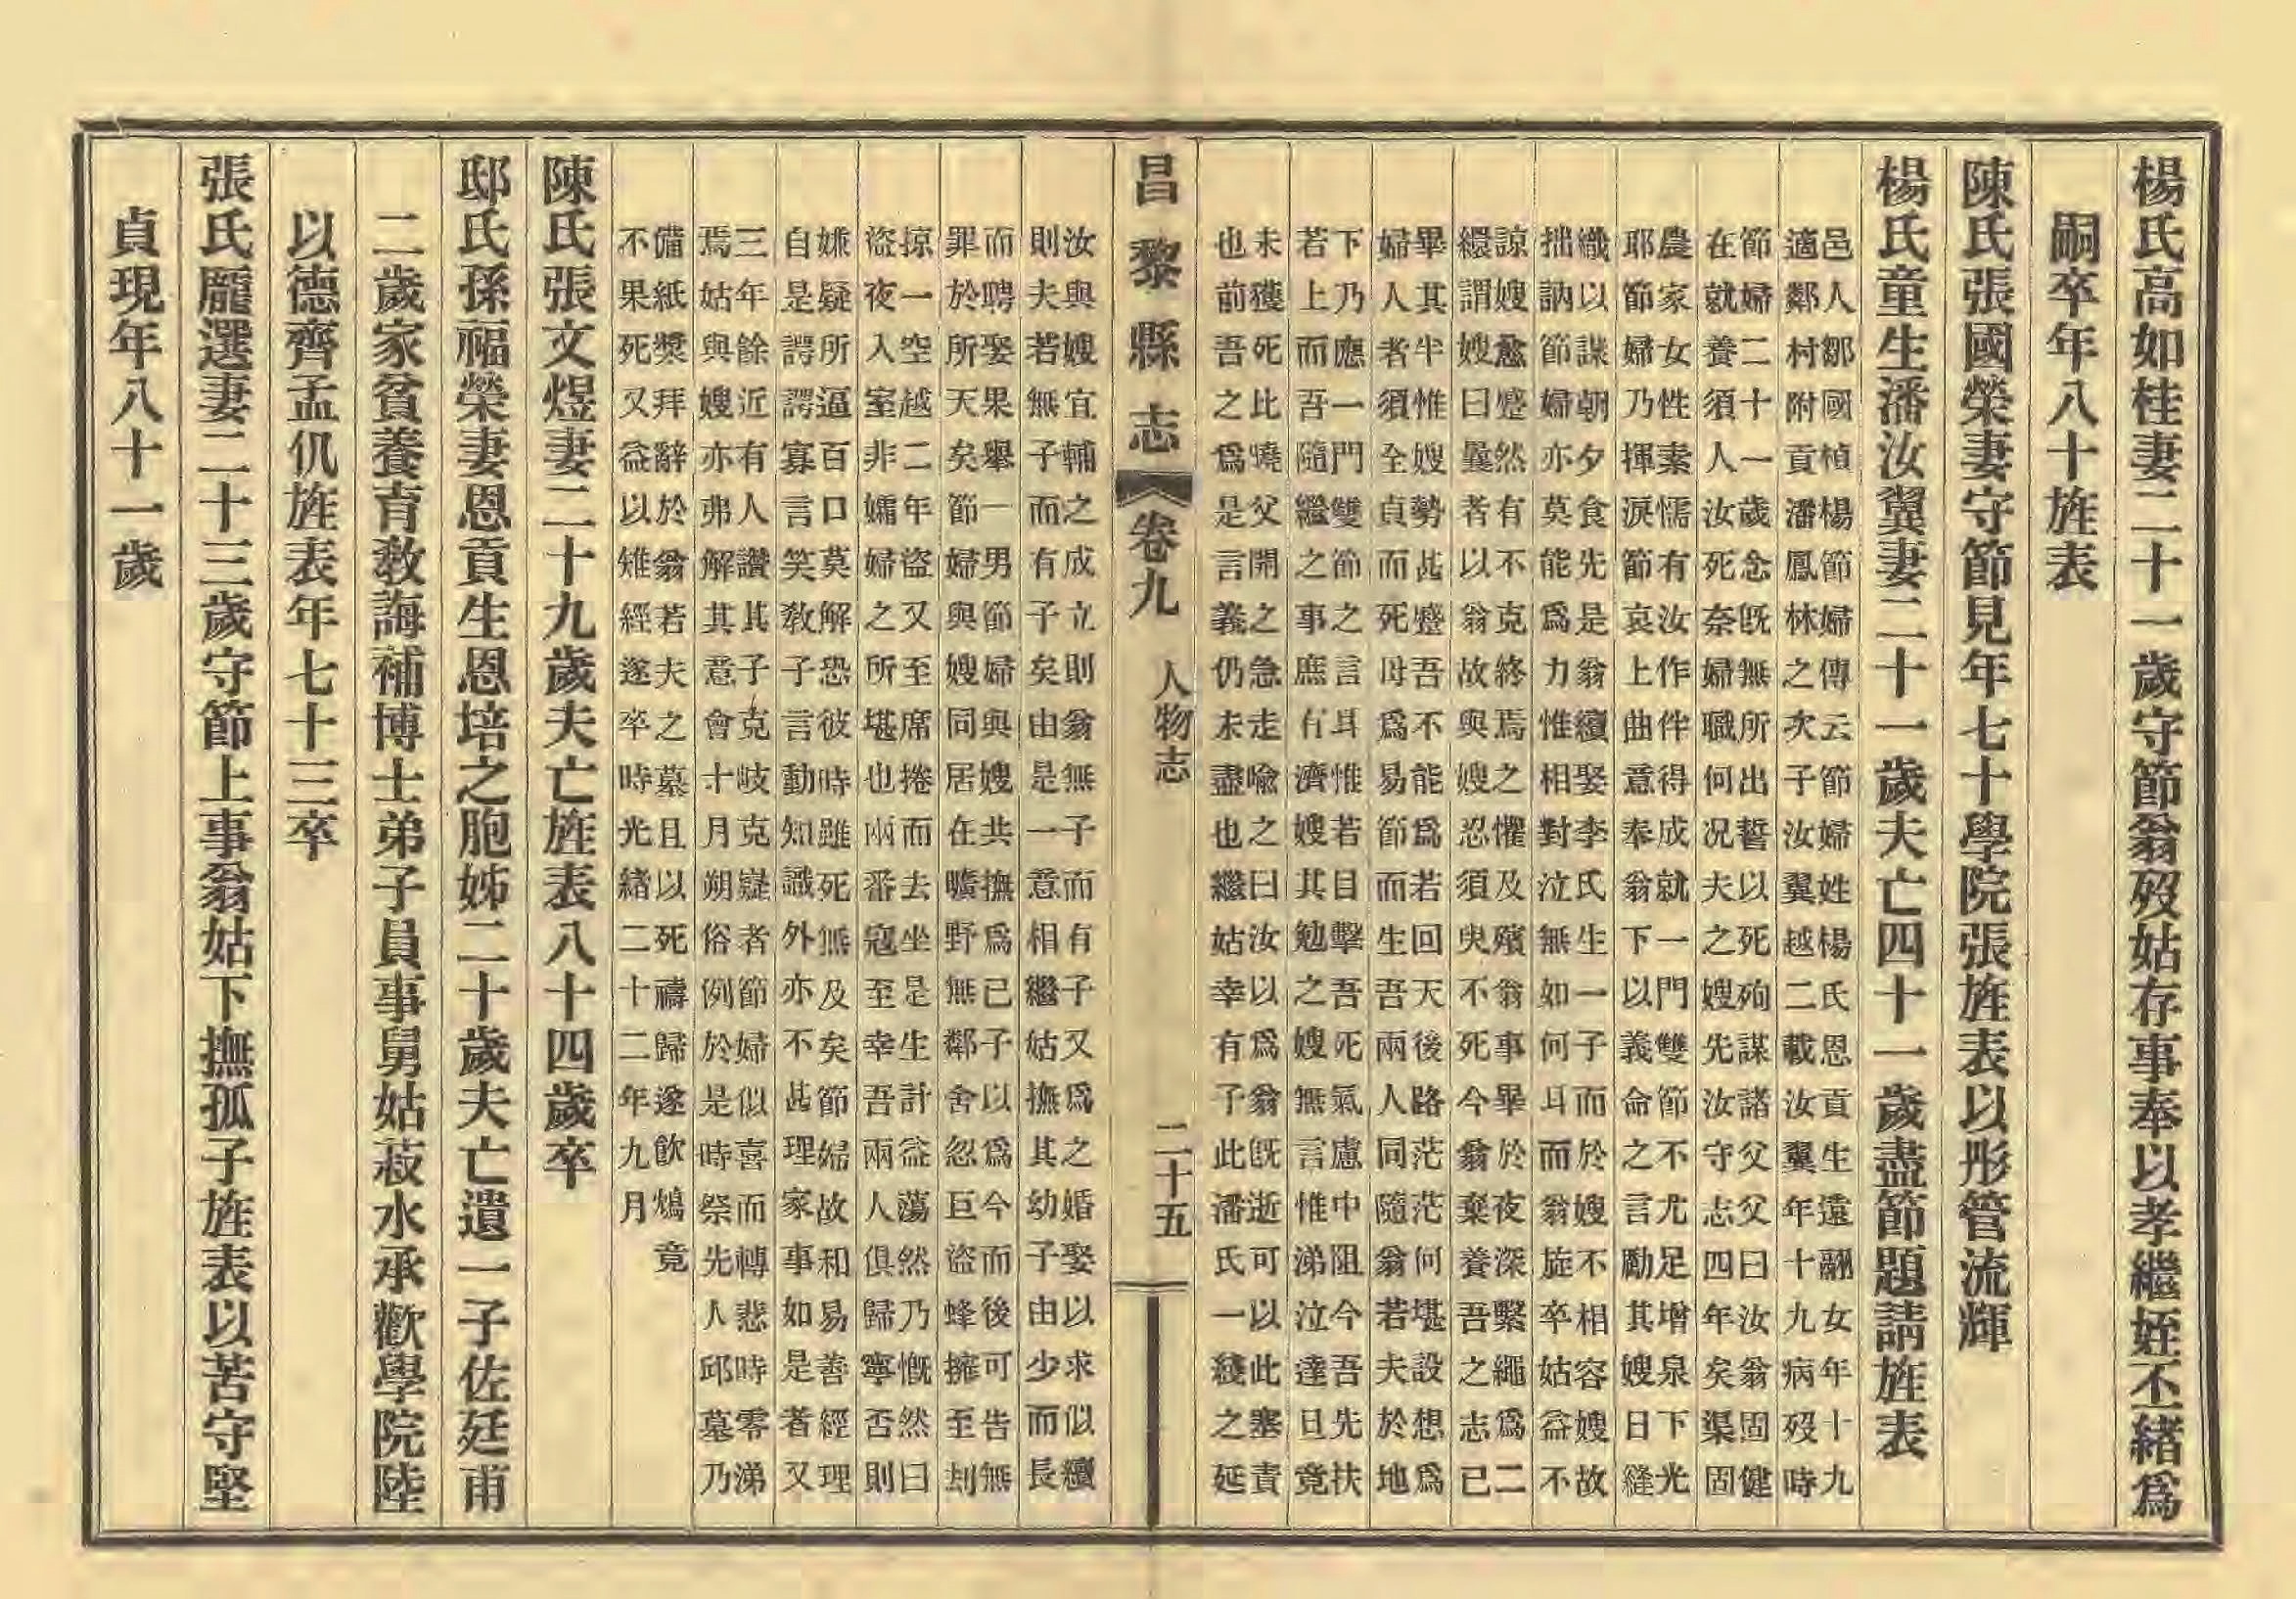 楊氏高如桂妻二十一歲守節翁歿姑存事奉以孝繼姪丕緒爲
嗣卒年八十旌表
陳氏張國榮妻守節見年七十學院張旌表以彤管流輝
楊氏童生潘汝翼妻二十一歲夫亡四十一歲盡節題請旌表
邑人鄒國楨楊節婦傳云節婦姓楊氏恩貢生遠翮女年十九
適鄰村附貢潘鳳林之次子汝翼越二載汝翼年十九病歿時
節婦二十一歲念既無所出誓以死殉謀諸父父曰汝翁固健
在就養須人汝死奈婦職何况夫之嫂先汝守志四年矣渠固
農家女性素懦有汝作伴得成就一門雙節不尤足增泉下光
耶節婦乃揮淚節哀上曲意奉翁下以義命之言勵其嫂日縫
織以謀朝夕食先是翁續娶李氏生一子而於嫂不相容嫂故
拙訥節婦亦莫能爲力惟相對泣無如何耳而翁旋卒姑益不
諒嫂愈蹙然有不克終焉之懼及殯翁事畢於夜深繫繩爲二
繯謂嫂曰曩者以翁故與嫂忍須臾不死今翁棄養吾之志已
畢其半惟嫂勢甚蹙吾不能爲若回天後路茫茫何堪設想爲
婦人者須全貞而死毋爲易節而生吾兩人同隨翁若夫於地
下乃應一門雙節之言耳惟若目擊吾死氣慮中阻今吾先扶
若上而吾隨繼之事庶有濟嫂其勉之嫂無言惟涕泣達旦竟
未獲死比曉父聞之急走喻之曰汝以爲翁既逝可以此塞責
也前吾之爲是言義仍未盡也繼姑幸有子此潘氏一綫之延
昌黎縣志 卷九 人物志 二十五
汝與嫂宜輔之成立則翁無子而有子又爲之婚娶以求似續
則夫若無子而有子矣由是一意相繼姑撫其幼子由少而長
而聘娶果舉一男節婦與嫂共撫爲己子以爲今而後可告無
罪於所天矣節婦與嫂同居在曠野無鄰舍忽巨盜蜂擁至刦
掠一空越二年盜又至席捲而去坐是生計益蕩然乃慨然曰
盜夜入室非孀婦之所堪也兩番寇至幸吾兩人俱歸寧否則
嫌疑所逼百口莫解恐彼時雖死無及矣節婦故和易善經理
自是諤諤寡言笑敎子言動知識外亦不甚理家事如是者又
三年餘近有人讚其子克岐克嶷者節婦似喜而轉悲時零涕
焉姑與嫂亦弗解其意會十月朔俗例於是時祭先人邱墓乃
備紙漿拜辭於翁若夫之墓且以死禱歸遂飮鴆竟
不果死又益以雉經遂卒時光緒二十二年九月
陳氏張文煜妻二十九歲夫亡旌表八十四歲卒
邸氏孫福榮妻恩貢生恩培之胞姊二十歲夫亡遺一子佐廷甫
二歲家貧養育敎誨補博士弟子員事舅姑菽水承歡學院陸
以德齊孟仉旌表年七十三卒
張氏龐選妻二十三歲守節上事翁姑下撫孤子旌表以苦守堅
貞現年八十一歲